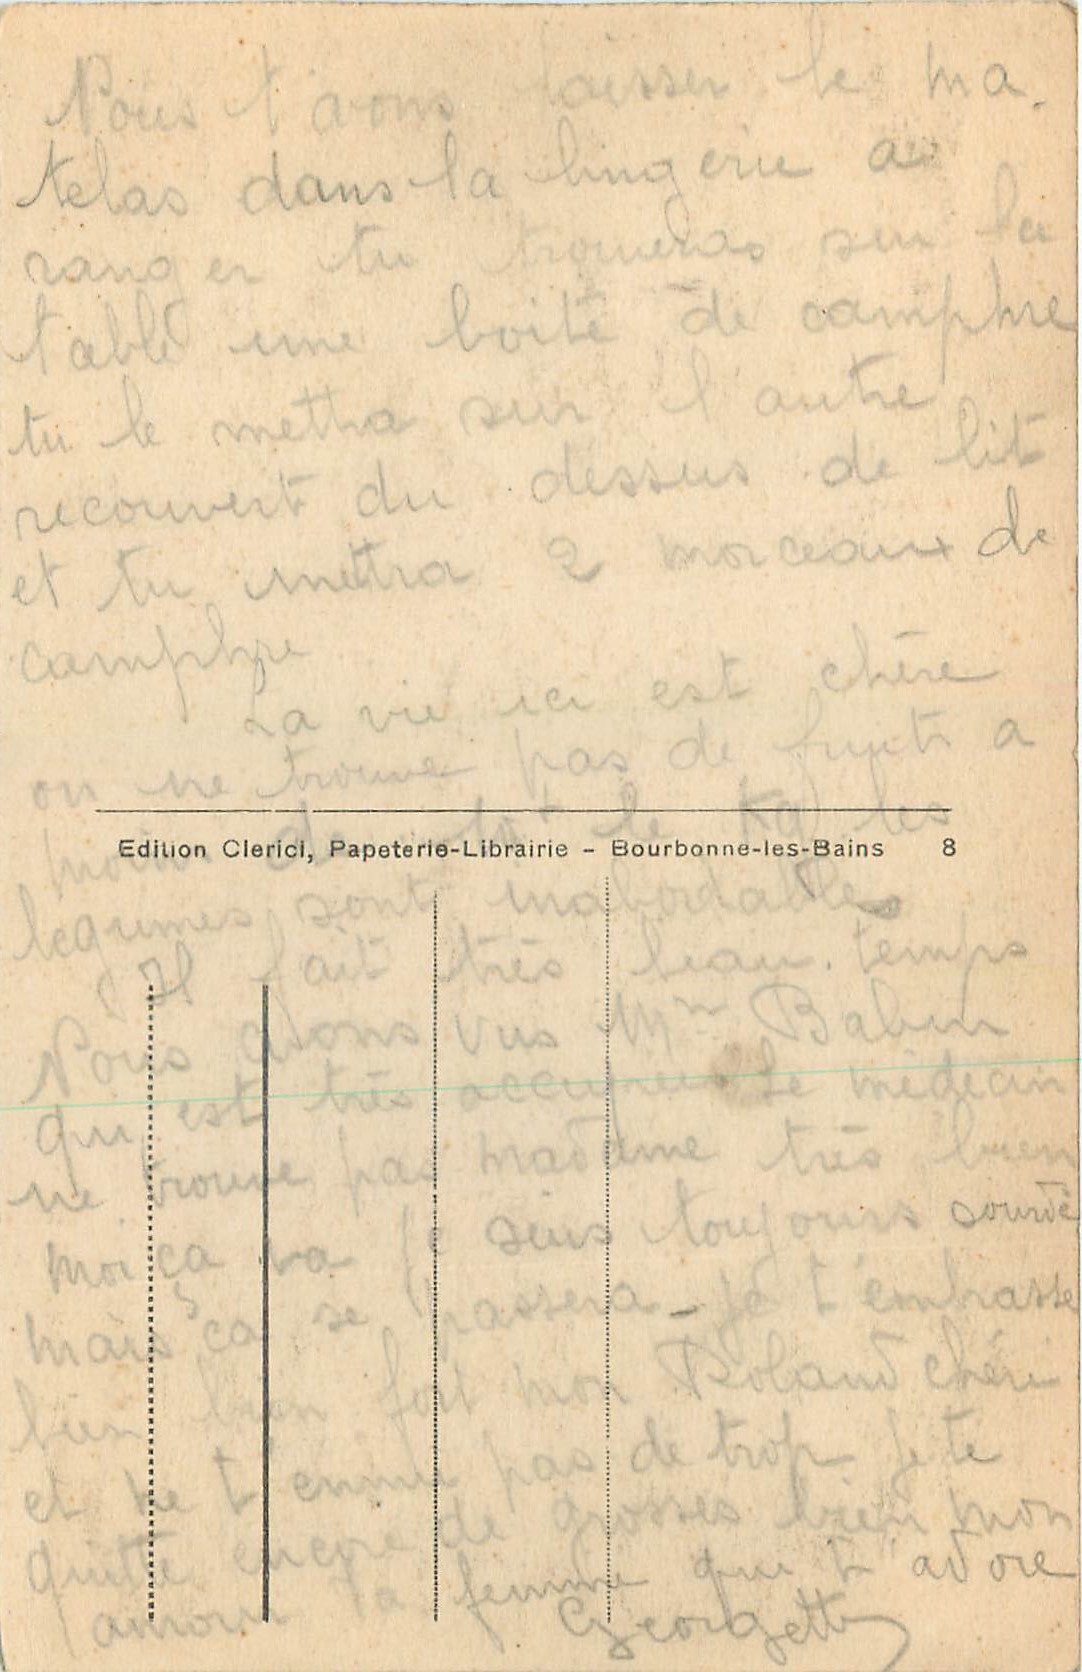 Nous t'avons laisser le ma-
telas dans la lingerie a
ranger tu trouveras sur la
table une boite de camphre
tu le mettra sur l'autre
recouvert du dessus de lit
et tu mettra 2 morceaux de
camphre
La vie ici est chère
on ne trouve pas de fruits a
moins de le Kg les
Edition Clerici, Papeterie-Librairie - Bourbonne-les-Bains 8
légumes sont inabordables
Il fait très beau temps
Nous avons vus Mm Babin
qui est très occupée Le médecin
ne trouve pas madame très bien
moi ça va je suis toujours sourde
mais ça se passera - Je t'embrasse
bien bien fort mon Roland chéri
et ne t'ennui pas de trop Je te
quitte encore de grosses bien mon
amour ta femme qui t'adore
Georgette